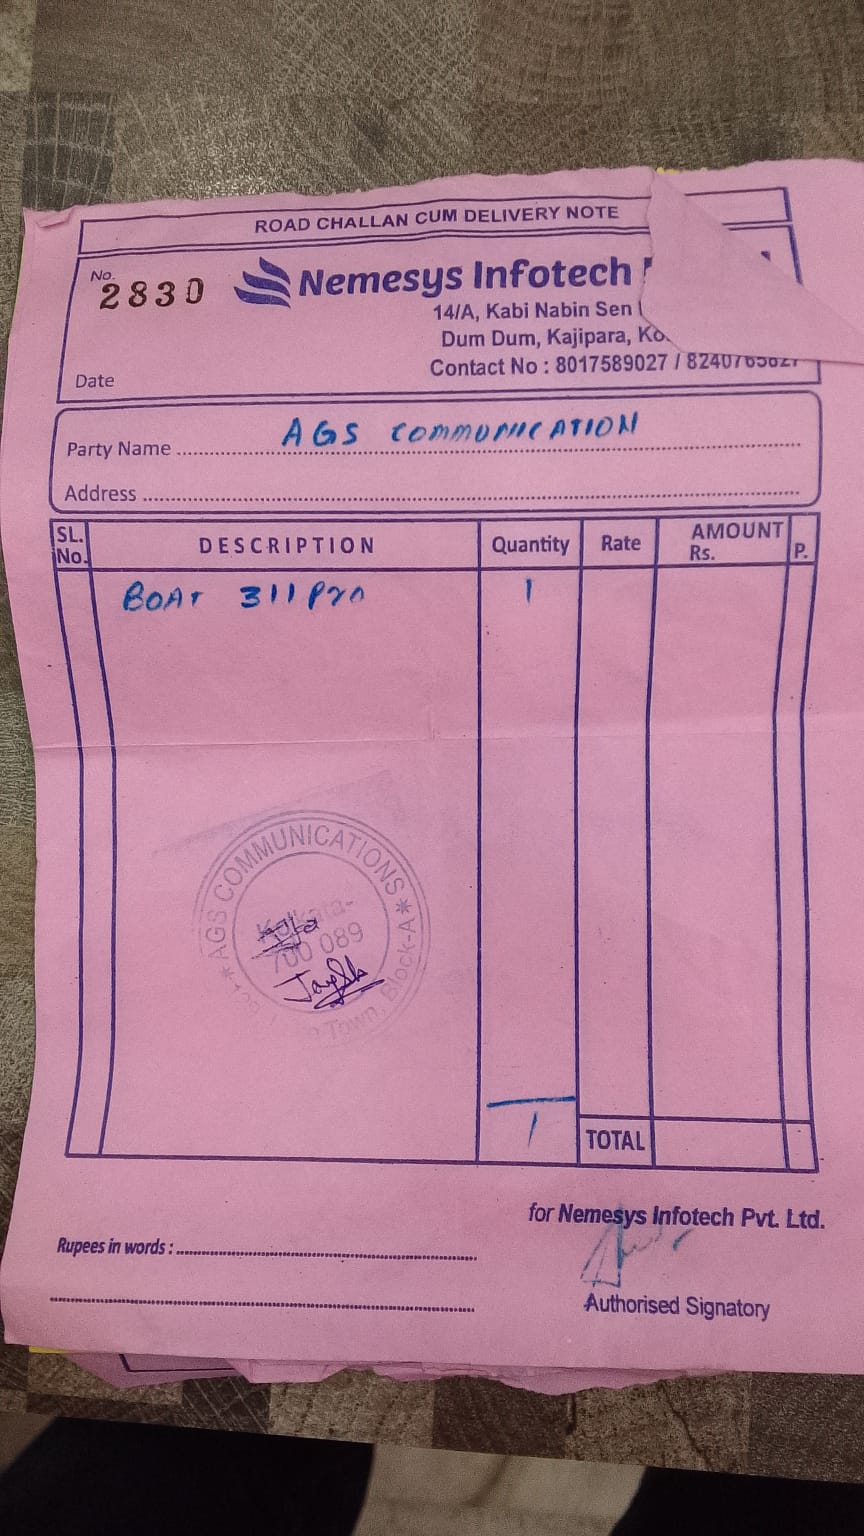 ROAD CHALLAN CUM DELIVERY NOTE
No. 2830
Nemesys Infotech
14/A, Kabi Nabin Sen
Dum Dum, Kajipara,
Contact No : 8017589027 /
Date
Party Name AGS COMMUNICATION
Address
SL. No. DESCRIPTION Quantity Rate AMOUNT Rs. P.
BOAT 311 Pro 1
*AGS COMMUNICATIONS*
Kolkata-
700 089
Town, Block-A
1
TOTAL
for Nemesys Infotech Pvt. Ltd.
Rupees in words :
Authorised Signatory